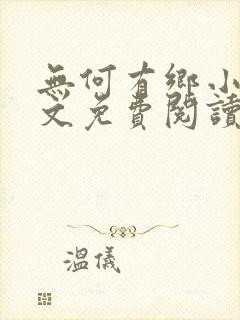 無何有鄉小
文免費閱讀
溫儀